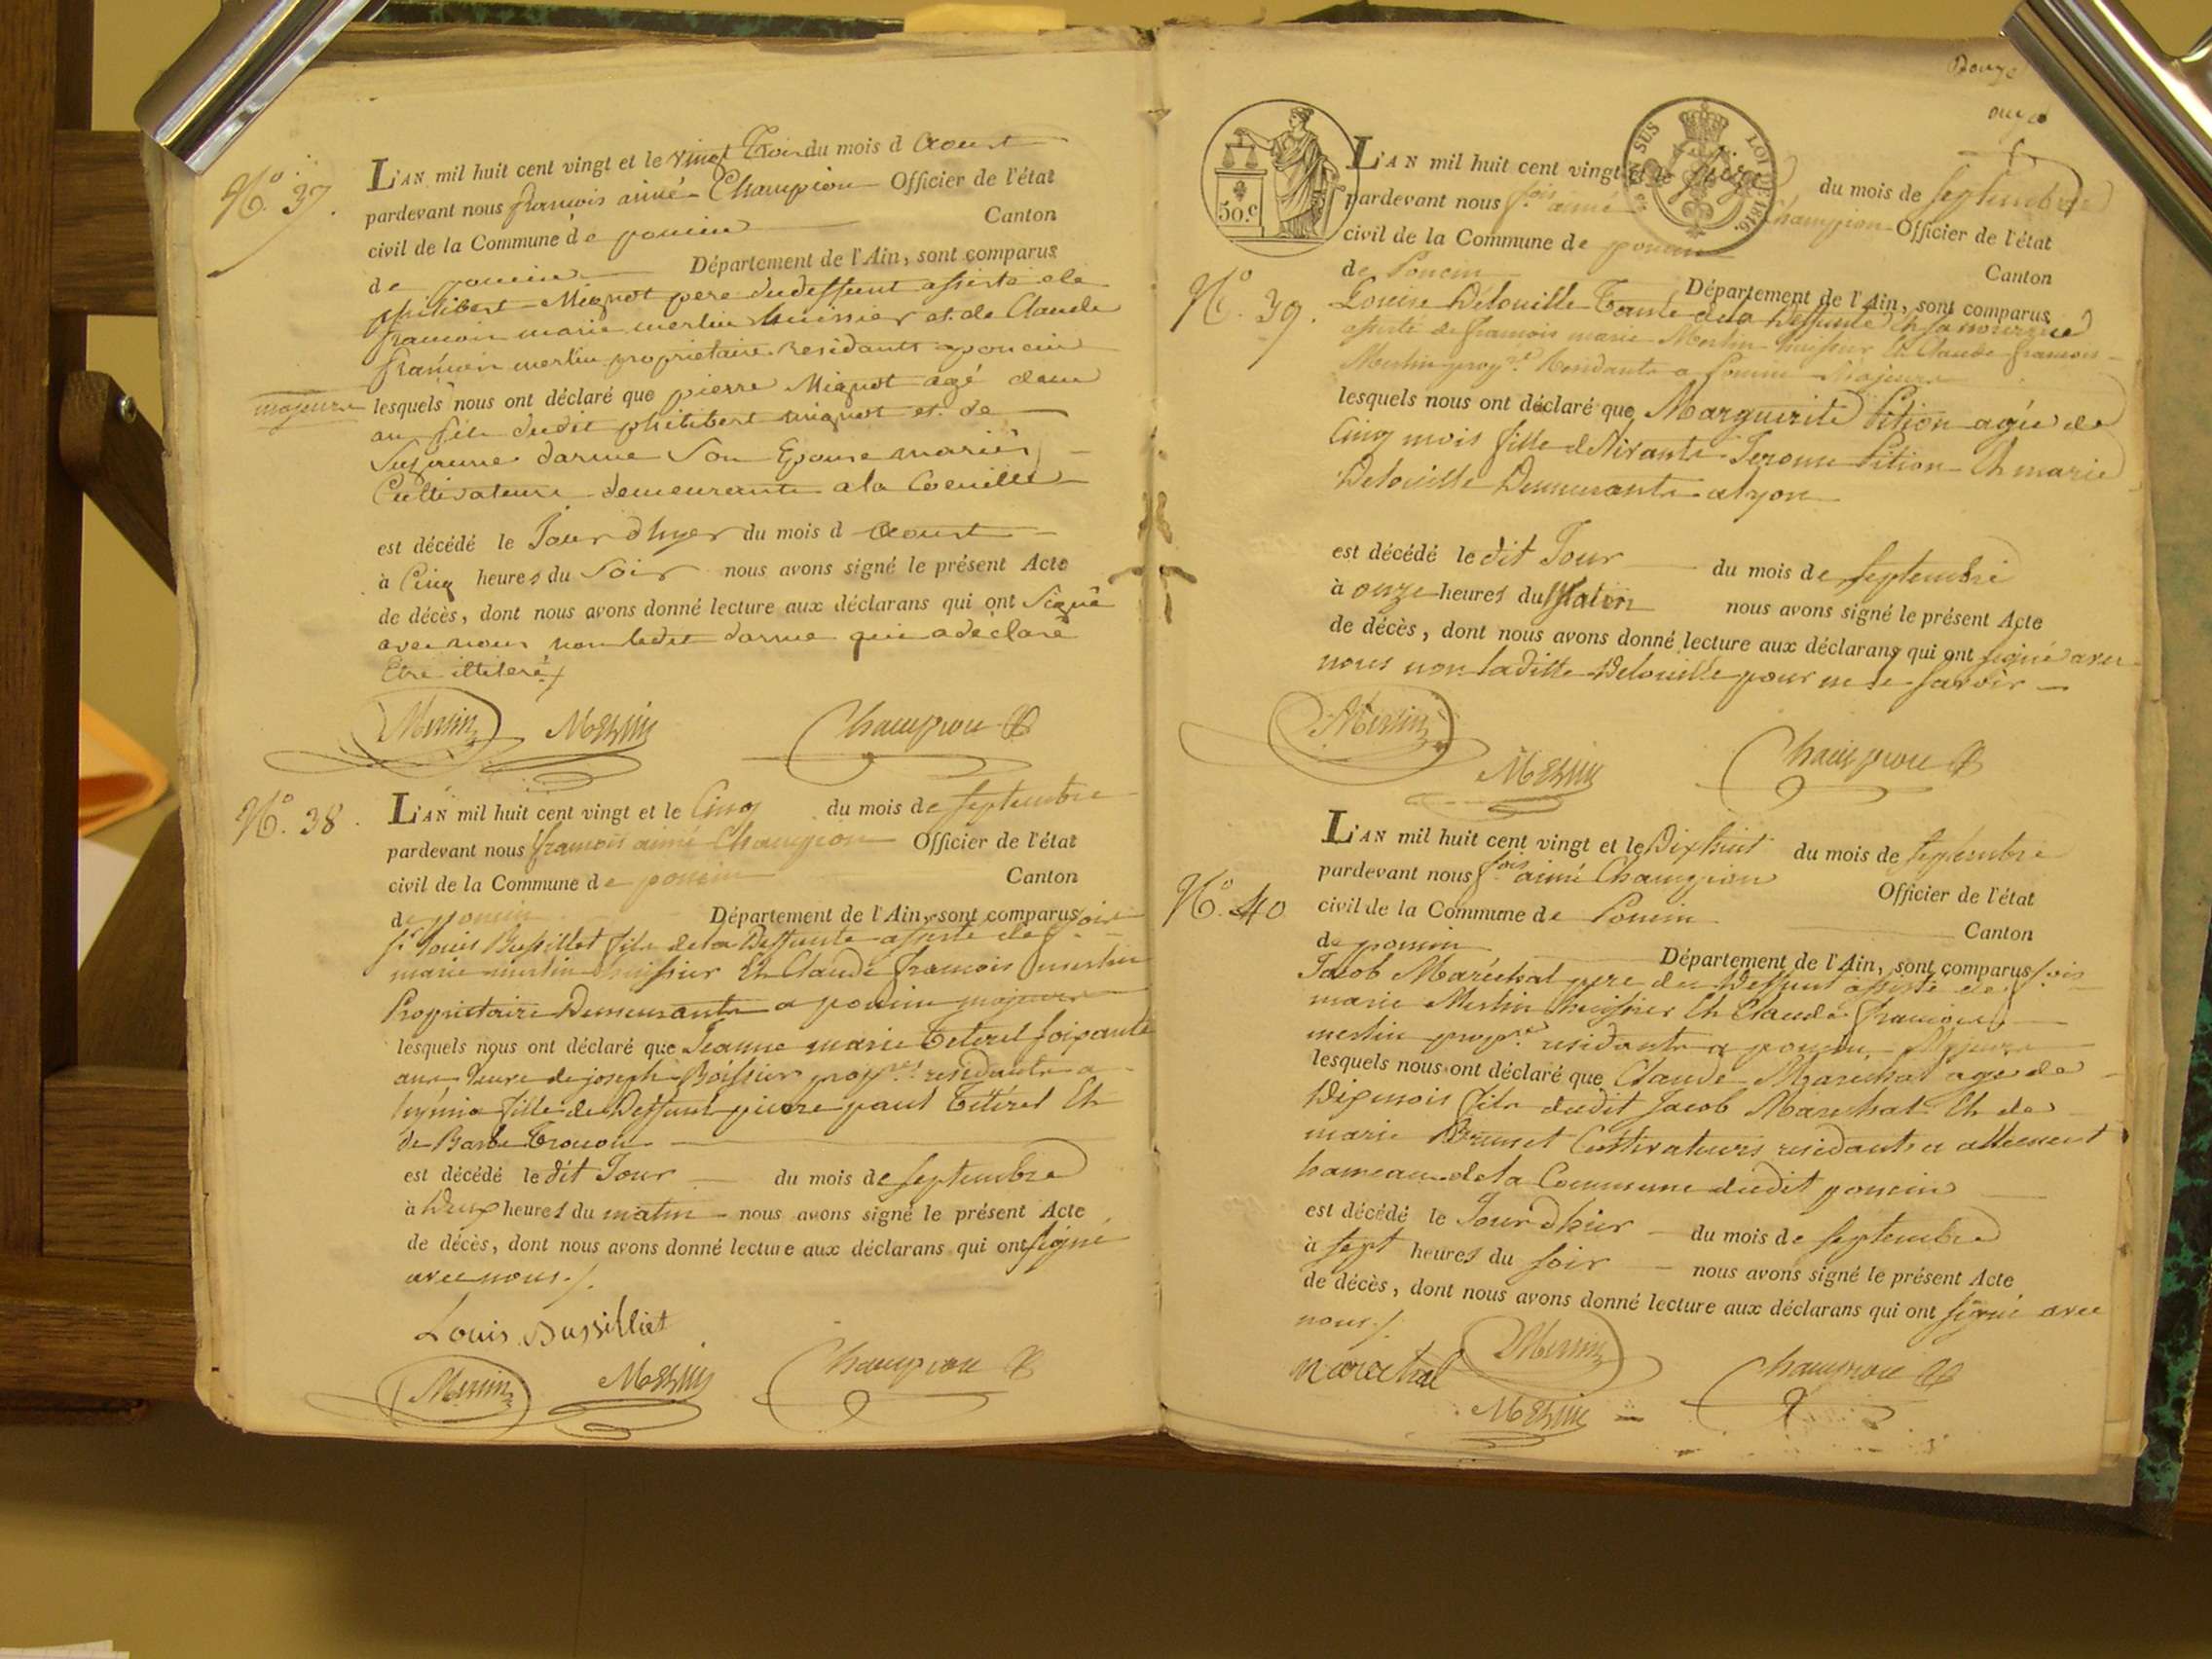 N.o 37.
L'AN mil huit cent vingt et le vingt Trois du mois d Aoust
pardevant nous françois aimé Champion Officier de l'état
civil de la Commune de poncin Canton
de poncin Département de l'Ain, sont comparus
philibert Mignot pere du deffunt assisté de
françois marie merlin huissier et de Claude
françois merlin proprietaire Residants a poncin
majeurs lesquels nous ont déclaré que pierre Mignot agé d'un
an fils dudit philibert mignot et de
Suzanne darme Son Epouse mariés
Cultivateurs demeurants a la
est décédé le Jour d'hyer du mois d Aoust
à Cinq heures du Soir nous avons signé le présent Acte
de décès, dont nous avons donné lecture aux déclarans qui ont Signé
avec nous non ledit darme qui a déclaré
Etre illiteré
Merlin Merlin Champion
N.o 38.
L'AN mil huit cent vingt et le Cinq du mois de septembre
pardevant nous françois aimé Champion Officier de l'état
civil de la Commune de poncin Canton
de poncin Département de l'Ain, sont comparus
sr louis Bussillet fils de la Deffunte assisté de fois
marie merlin huissier Et Claude françois merlin
Proprietaire Demeurants a poncin majeurs
lesquels nous ont déclaré que Jeanne marie Teterel soixante
ans veuve de joseph propres residante a
fille de Deffunt pierre paul Tétérel Et
de Barbe
est décédé le dit Jour du mois de septembre
à Deux heures du matin nous avons signé le présent Acte
de décès, dont nous avons donné lecture aux déclarans qui ont signé
avec nous./.
Louis Bussilliet
Merlin Merlin Champion
onze
50.c
EN SUS LOI DE 1816.
L'AN mil huit cent vingt et le seize du mois de septembre
pardevant nous fois aimé Champion Officier de l'état
civil de la Commune de poncin Canton
de Poncin Département de l'Ain, sont comparus
N.o 39.
Louise Délouille Tante de la Deffunte Et sa nourrice
assisté de francois marie Merlin huissier Et Claude francois
Merlin propre Residants a poncin Majeurs
lesquels nous ont déclaré que Marguerite Pition agée de
Cinq mois fille de Vivants Jerome Pition Et marie
Delouille Demeurants a lyon
est décédé le dit Jour du mois de septembre
à onze heures du Matin nous avons signé le présent Acte
de décès, dont nous avons donné lecture aux déclarans qui ont signé avec
nous non laditte Delouille pour ne le savoir
Merlin Merlin Champion
L'AN mil huit cent vingt et le Dixhuit du mois de septembre
pardevant nous fois aimé Champion Officier de l'état
N.o 40
civil de la Commune de Poncin Canton
de poncin Département de l'Ain, sont comparus
Jacob Maréchal pere du Deffunt assisté de fois
marie Merlin huissier Et Claude francois
merlin propre residants a poncin Majeurs
lesquels nous ont déclaré que Claude Marechal age de
Dixmois fils dudit Jacob Marechal Et de
marie Brunet Cultivateurs residants a allement
hameau de la Commune dudit poncin
est décédé le Jour d'hier du mois de septembre
à sept heures du soir nous avons signé le présent Acte
de décès, dont nous avons donné lecture aux déclarans qui ont signé avec
nous./.
marechal Merlin Champion
Merlin